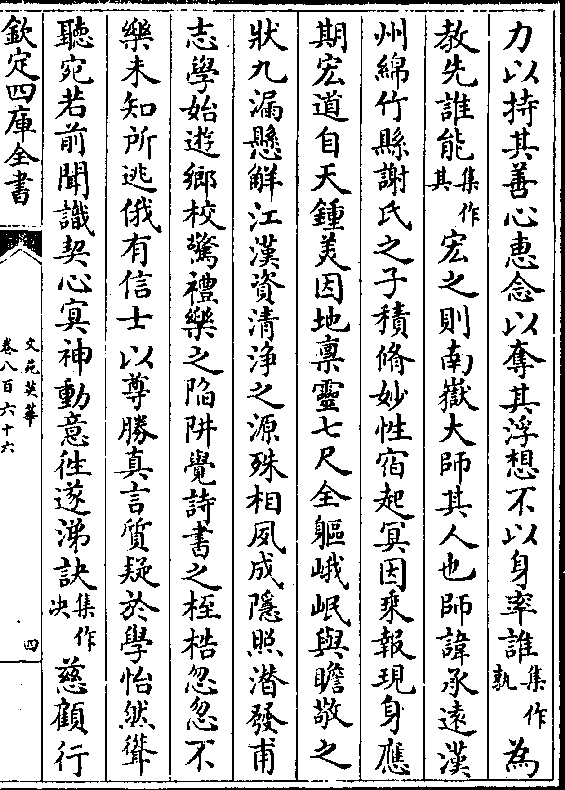 力以持其善心惠念以奪其浮想不以身率誰集作孰為
教先誰能集作其宏之則南嶽大師其人也師諱承遠漢
州綿竹縣謝氏之子積脩妙性宿起冥因乘報現身應
期宏道自天鍾美因地禀靈七尺全軀峨岷與瞻敬之
狀九漏懸解江漢資清浄之源殊相夙成隱照潛發甫
志學始遊鄉校驚禮樂之陷阱覺詩書之桎梏忽忽不
樂未知所逃俄有信士以尊勝真言質疑於學怡然聳
聽宛若前聞識契心冥神動意徃遂涕訣集作决慈顧行
欽定四庫全書
文苑英華
卷八百六十六
四